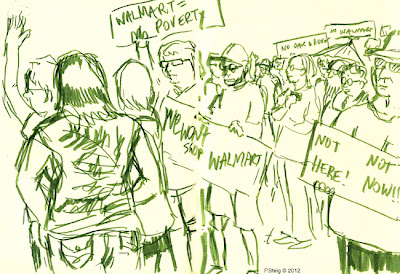 WALMART =
POVERTY
NO WALMART
WE WON'T
SHOP WALMART
NOT
HERE!
NOT
NOW!!
P.Steig © 2012